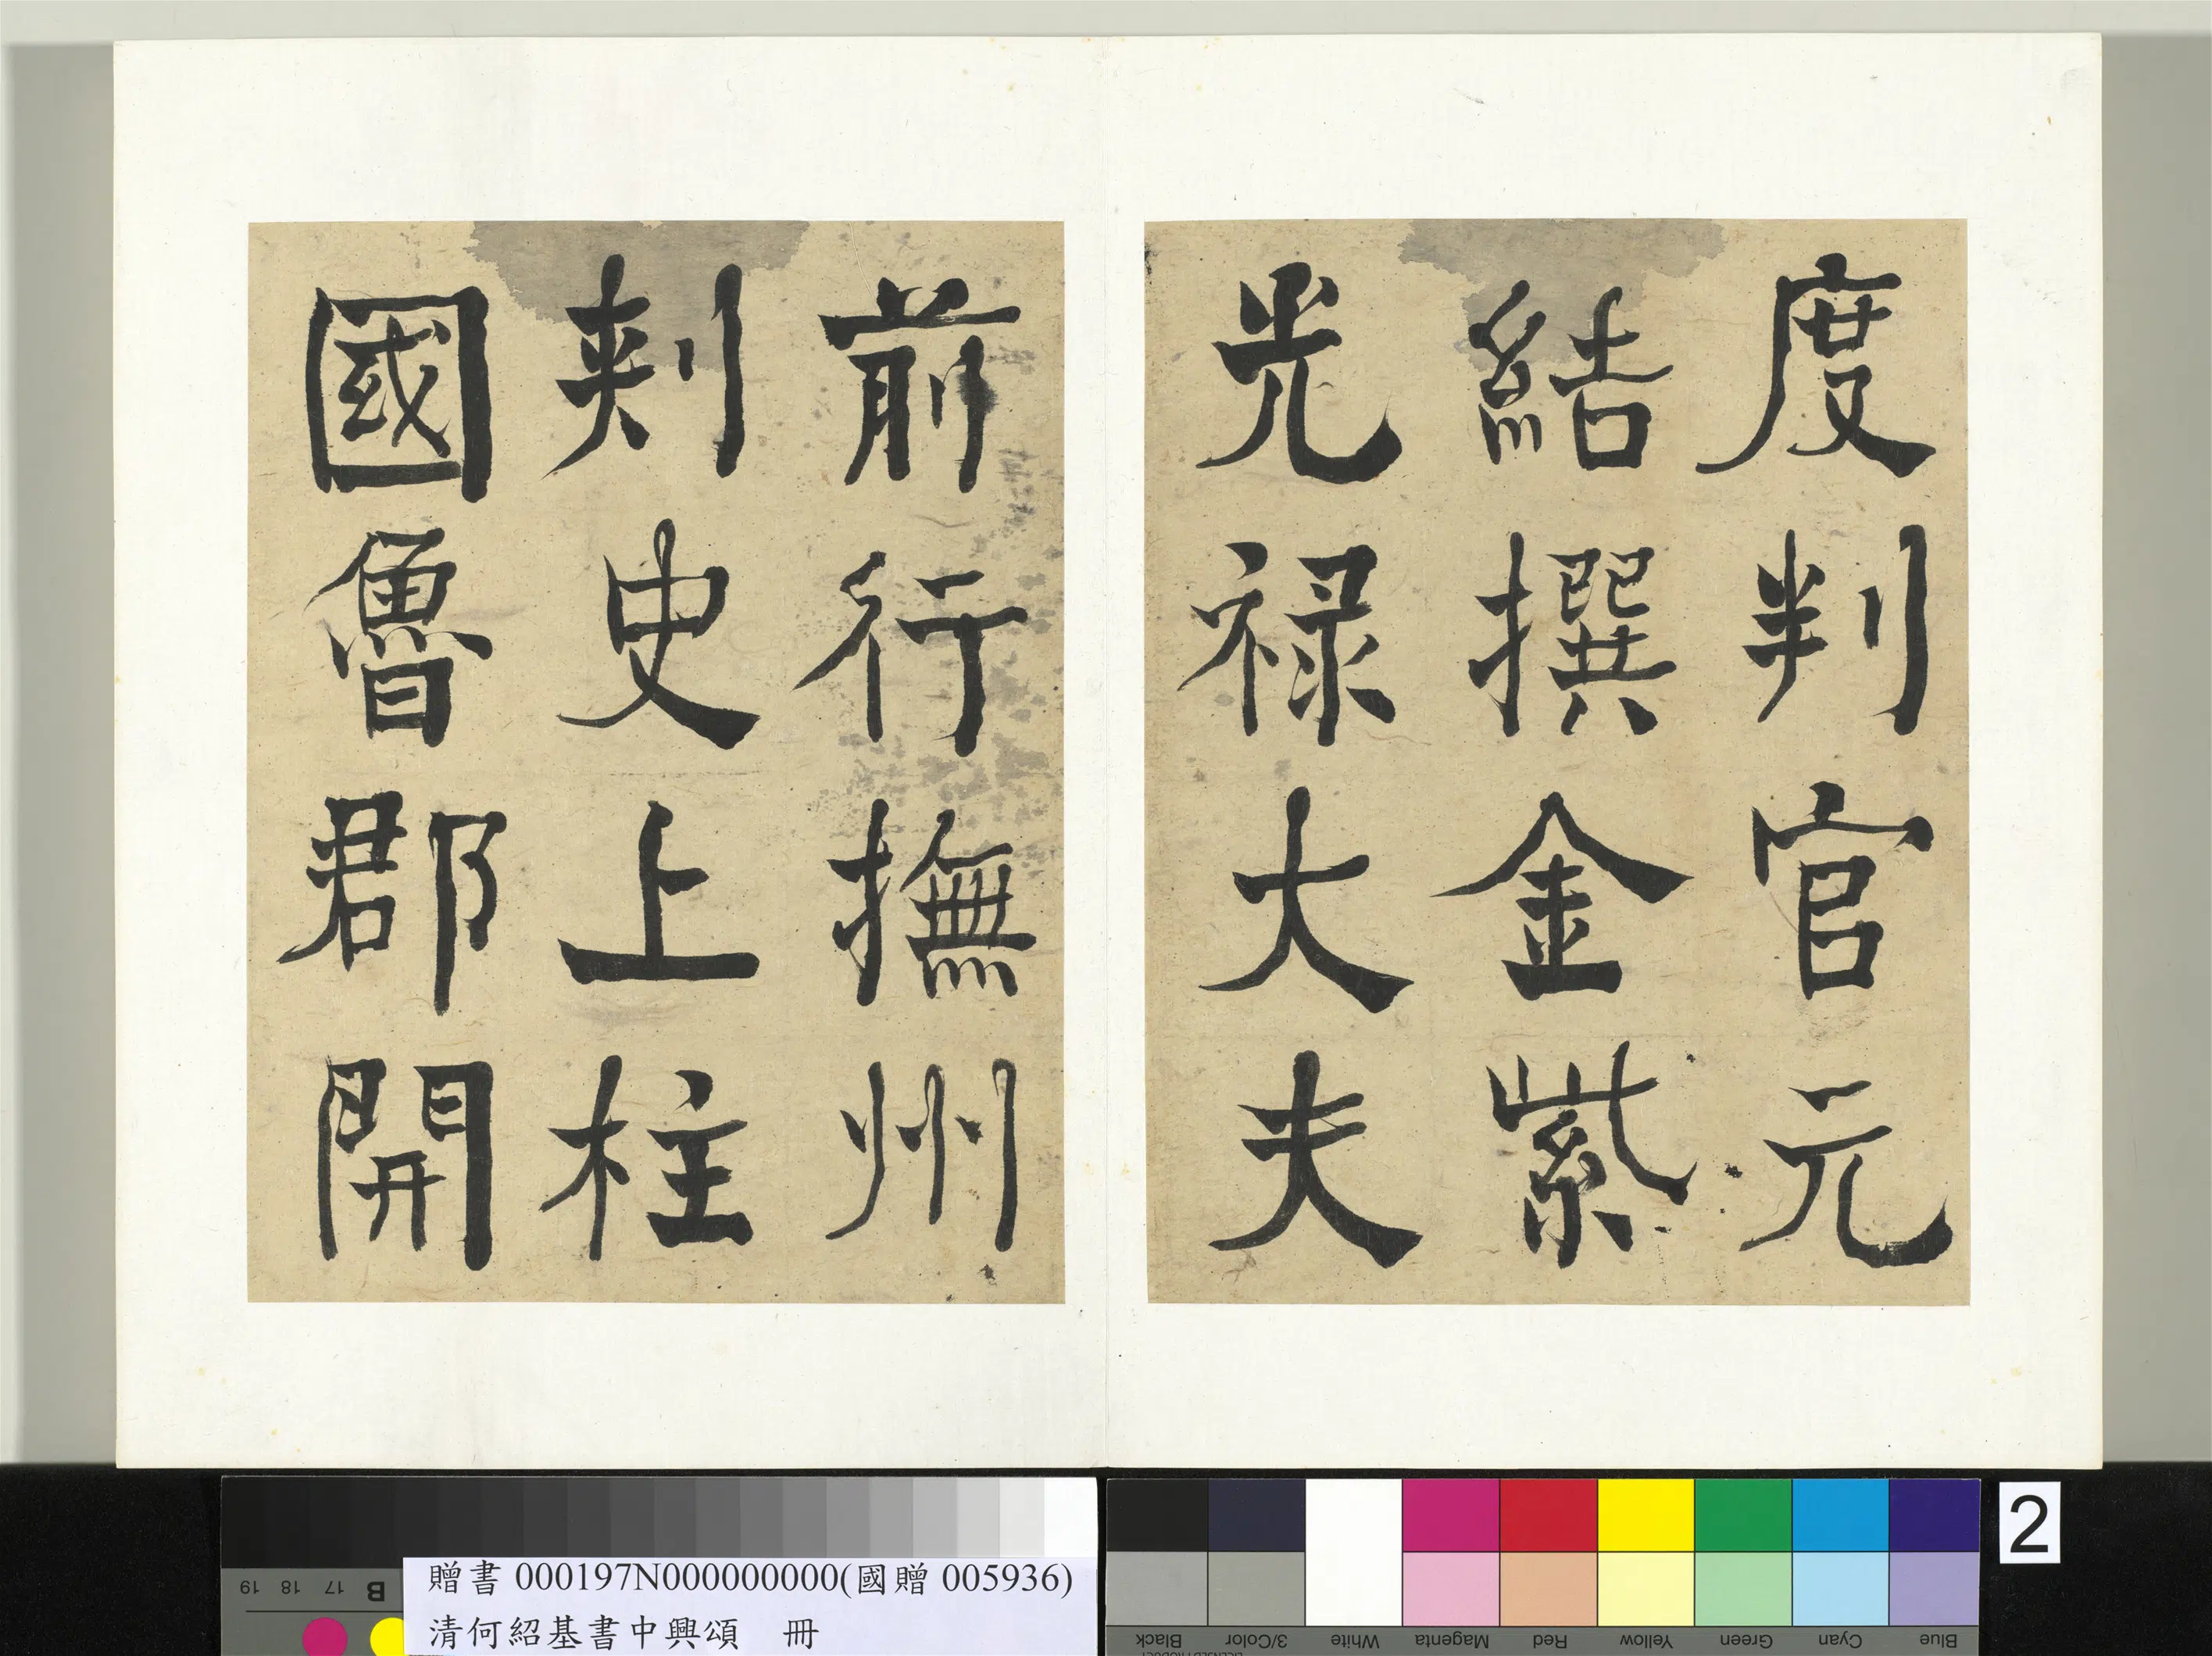 度判官元
結撰金紫
光禄大夫
前行撫州
刾史上柱
國魯郡開
贈書 000197N000000000(國贈 005936)
清何紹基書中興頌　冊
2
19 18 17 B
Black 3/Color White Magenta Red Yellow Green Cyan Blue